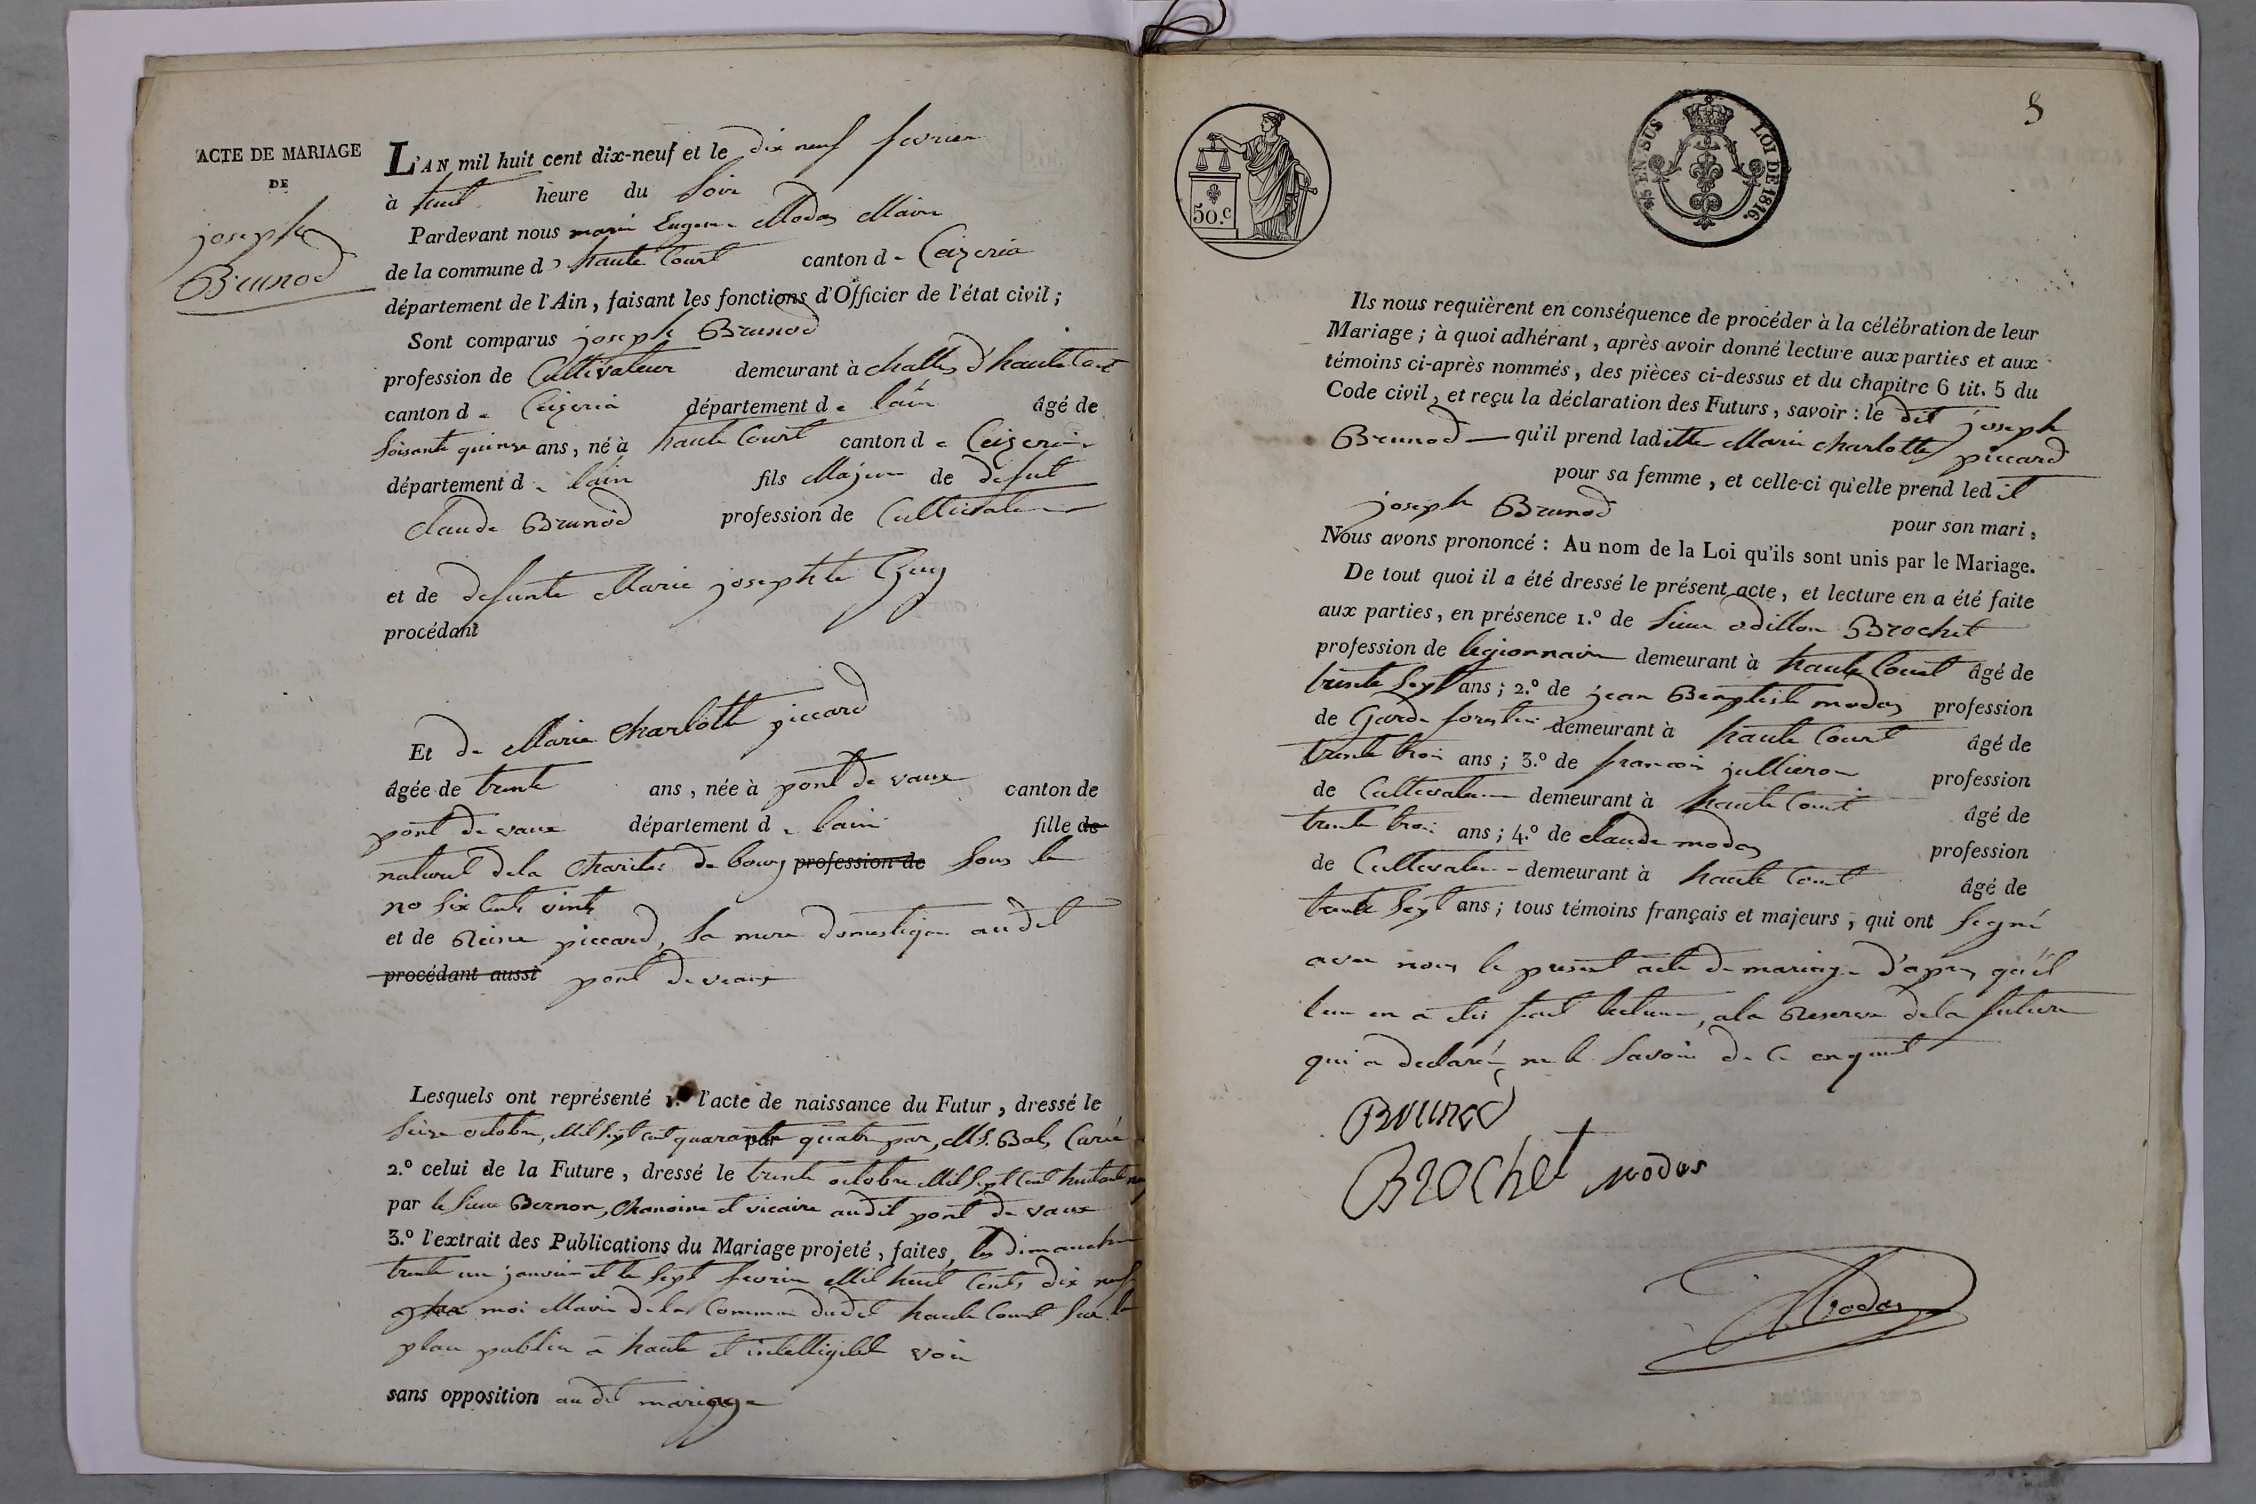 ACTE DE MARIAGE
DE
joseph
Brunod
L'AN mil huit cent dix-neuf et le dix neuf fevrier
à huit heure du soir
Pardevant nous marie Eugene Modas Maire
de la commune d haute Court canton de Ceizeria
département de l'Ain, faisant les fonctions d'Officier de l'état civil ;
Sont comparus joseph Brunod
profession de Cultivateur demeurant à challes d'haute Court
canton de Ceizeria département de lain âgé de
soisante quinze ans, né à haute Court canton de Ceizeria
département de lain fils Majeur de defut
Claude Brunod profession de Cultivateur
et de defunte Marie josephte
procédant
Et de Marie Charlotte piccard
âgée de trente ans, née à pont de vaux canton de
pont de vaux département de lain fille de
naturel dela Charitée de bourg profession de sous le
no six cents vints
et de Reine piccard, sa mere domestique au dit
procédant aussi pont de vaux
Lesquels ont représenté 1.º l'acte de naissance du Futur, dressé le
seize octobre, Mil sept cent quarante quatre par, M.S. Bal, Curé
2.º celui de la Future, dressé le trente octobre Mil sept cent huitante neuf
par le sieur Bernon, Chanoine et vicaire audit pont de vaux
3.º l'extrait des Publications du Mariage projeté, faites, les dimanche
trente un janvier et le sept fevrier Mil huit Cents dix neuf
par moi Maire dela Commune dudit haute Court sur la
place publice a haute et intelligible voix
sans opposition au dit mariage
5
50.c
EN SUS
LOI DE 1816.
Ils nous requièrent en conséquence de procéder à la célébration de leur
Mariage ; à quoi adhérant, après avoir donné lecture aux parties et aux
témoins ci-après nommés, des pièces ci-dessus et du chapitre 6 tit. 5 du
Code civil, et reçu la déclaration des Futurs, savoir : le dit joseph
Brunod qu'il prend laditte Marie charlotte piccard
pour sa femme, et celle-ci qu'elle prend ledit
joseph Brunod pour son mari,
Nous avons prononcé : Au nom de la Loi qu'ils sont unis par le Mariage.
De tout quoi il a été dressé le présent acte, et lecture en a été faite
aux parties, en présence 1.º de sieur odillon Brochet
profession de legionnaire demeurant à haute Court âgé de
trente sept ans ; 2.º de jean Baptiste modas profession
de Garde forestier demeurant à haute Court âgé de
trente trois ans ; 3.º de francois jullieron profession
de Cultivateur demeurant à haute Court âgé de
trente trois ans ; 4.º de claude modas profession
de Cultivateur demeurant à haute Court âgé de
trente sept ans ; tous témoins français et majeurs, qui ont signé
avec nous le present acte de mariage d'apres qu'il
leur en a été fait lecture, ala Reserve dela future
qui a declaré ne le savoir de ce enquit
Brunod
Brochet modas
Modas